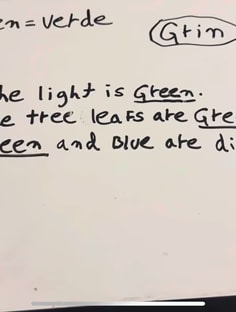 en = verde
Grin
he light is Green.
e tree leafs are Gre
een and Blue are di